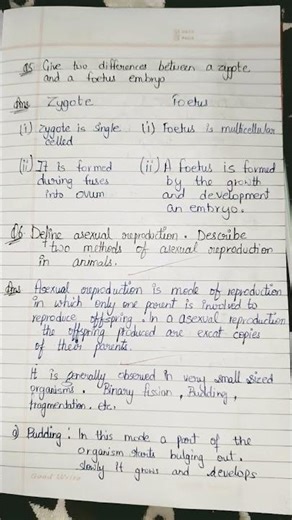 Q5 Give two differences between a zygote
and a foetus embryo
Ans Zygote Foetus
(i) Zygote is single (i) Foetus is multicellular
celled
(ii) It is formed (ii) A foetus is formed
during fuses by the growth
into ovum and development
an embryo.
Q6 Define asexual reproduction. Describe
two methods of asexual reproduction
in animals.
Ans Asexual reproduction is mode of reproduction
in which only one parent is involved to
reproduce offspring. In a asexual reproduction
the offspring produced are excat copies
of their parents.
It is generally observed in very small sized
organisms. Binary fission, Budding,
fragmentation. etc.
a) Budding: In this mode a part of the
organism starts bulging out.
slowly It grows and develops